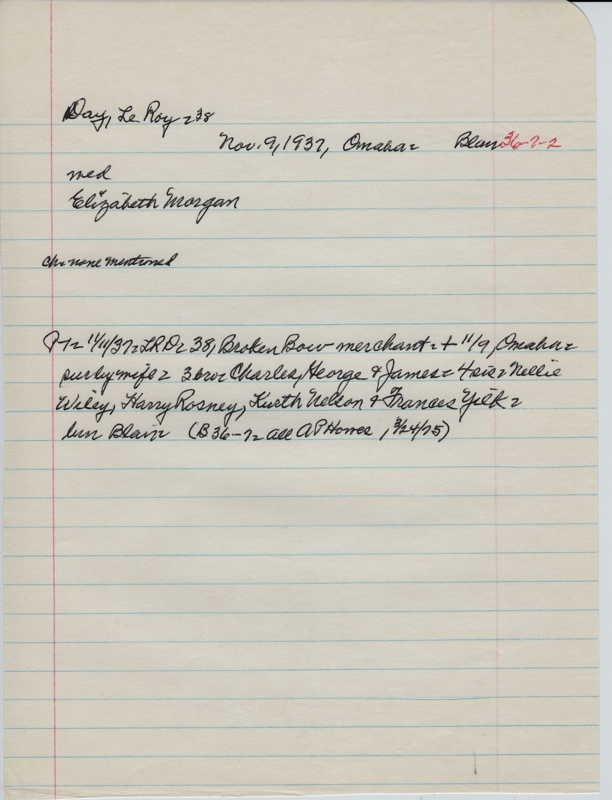 Day, Le Roy - 38
Nov. 9, 1937, Omaha - Blair 36-7-2
med
Elizabeth Morgan
Ch - none mentioned
PT - 11/11/37 - LRD - 38, Broken Bow merchant - + 11/9, Omaha -
sur by wife - 3 bro - Charles, George & James - 4 sis - Nellie
Wiley, Harry Rosney, Kurth Nelson & Frances Yelk -
bur Blair (B 36-7 - all AP Howes, 3/24/75)